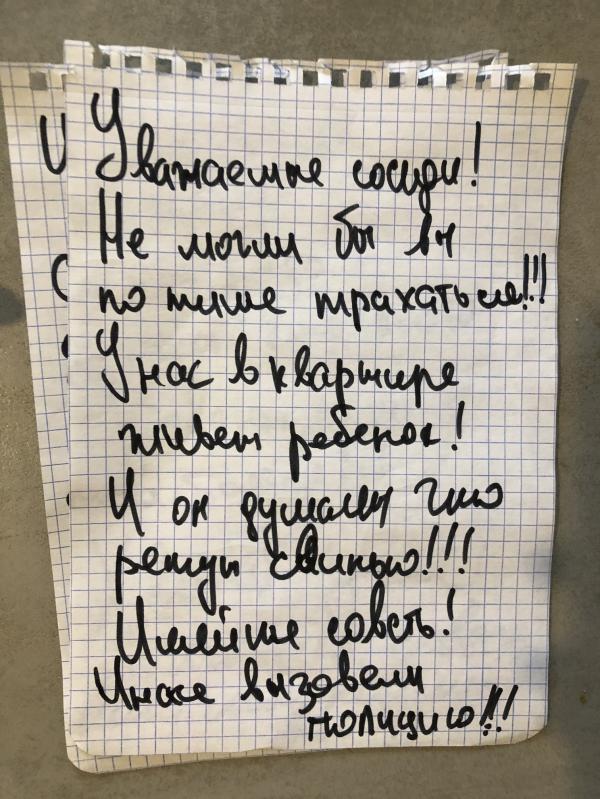 Уважаемые соседи!
Не могли бы вы
по тише трахаться!!!
У нас в квартире
живет ребенок!
И он думает что
режут свинью!!!
Имейте совсть!
Иначе вызовем
полицию!!!